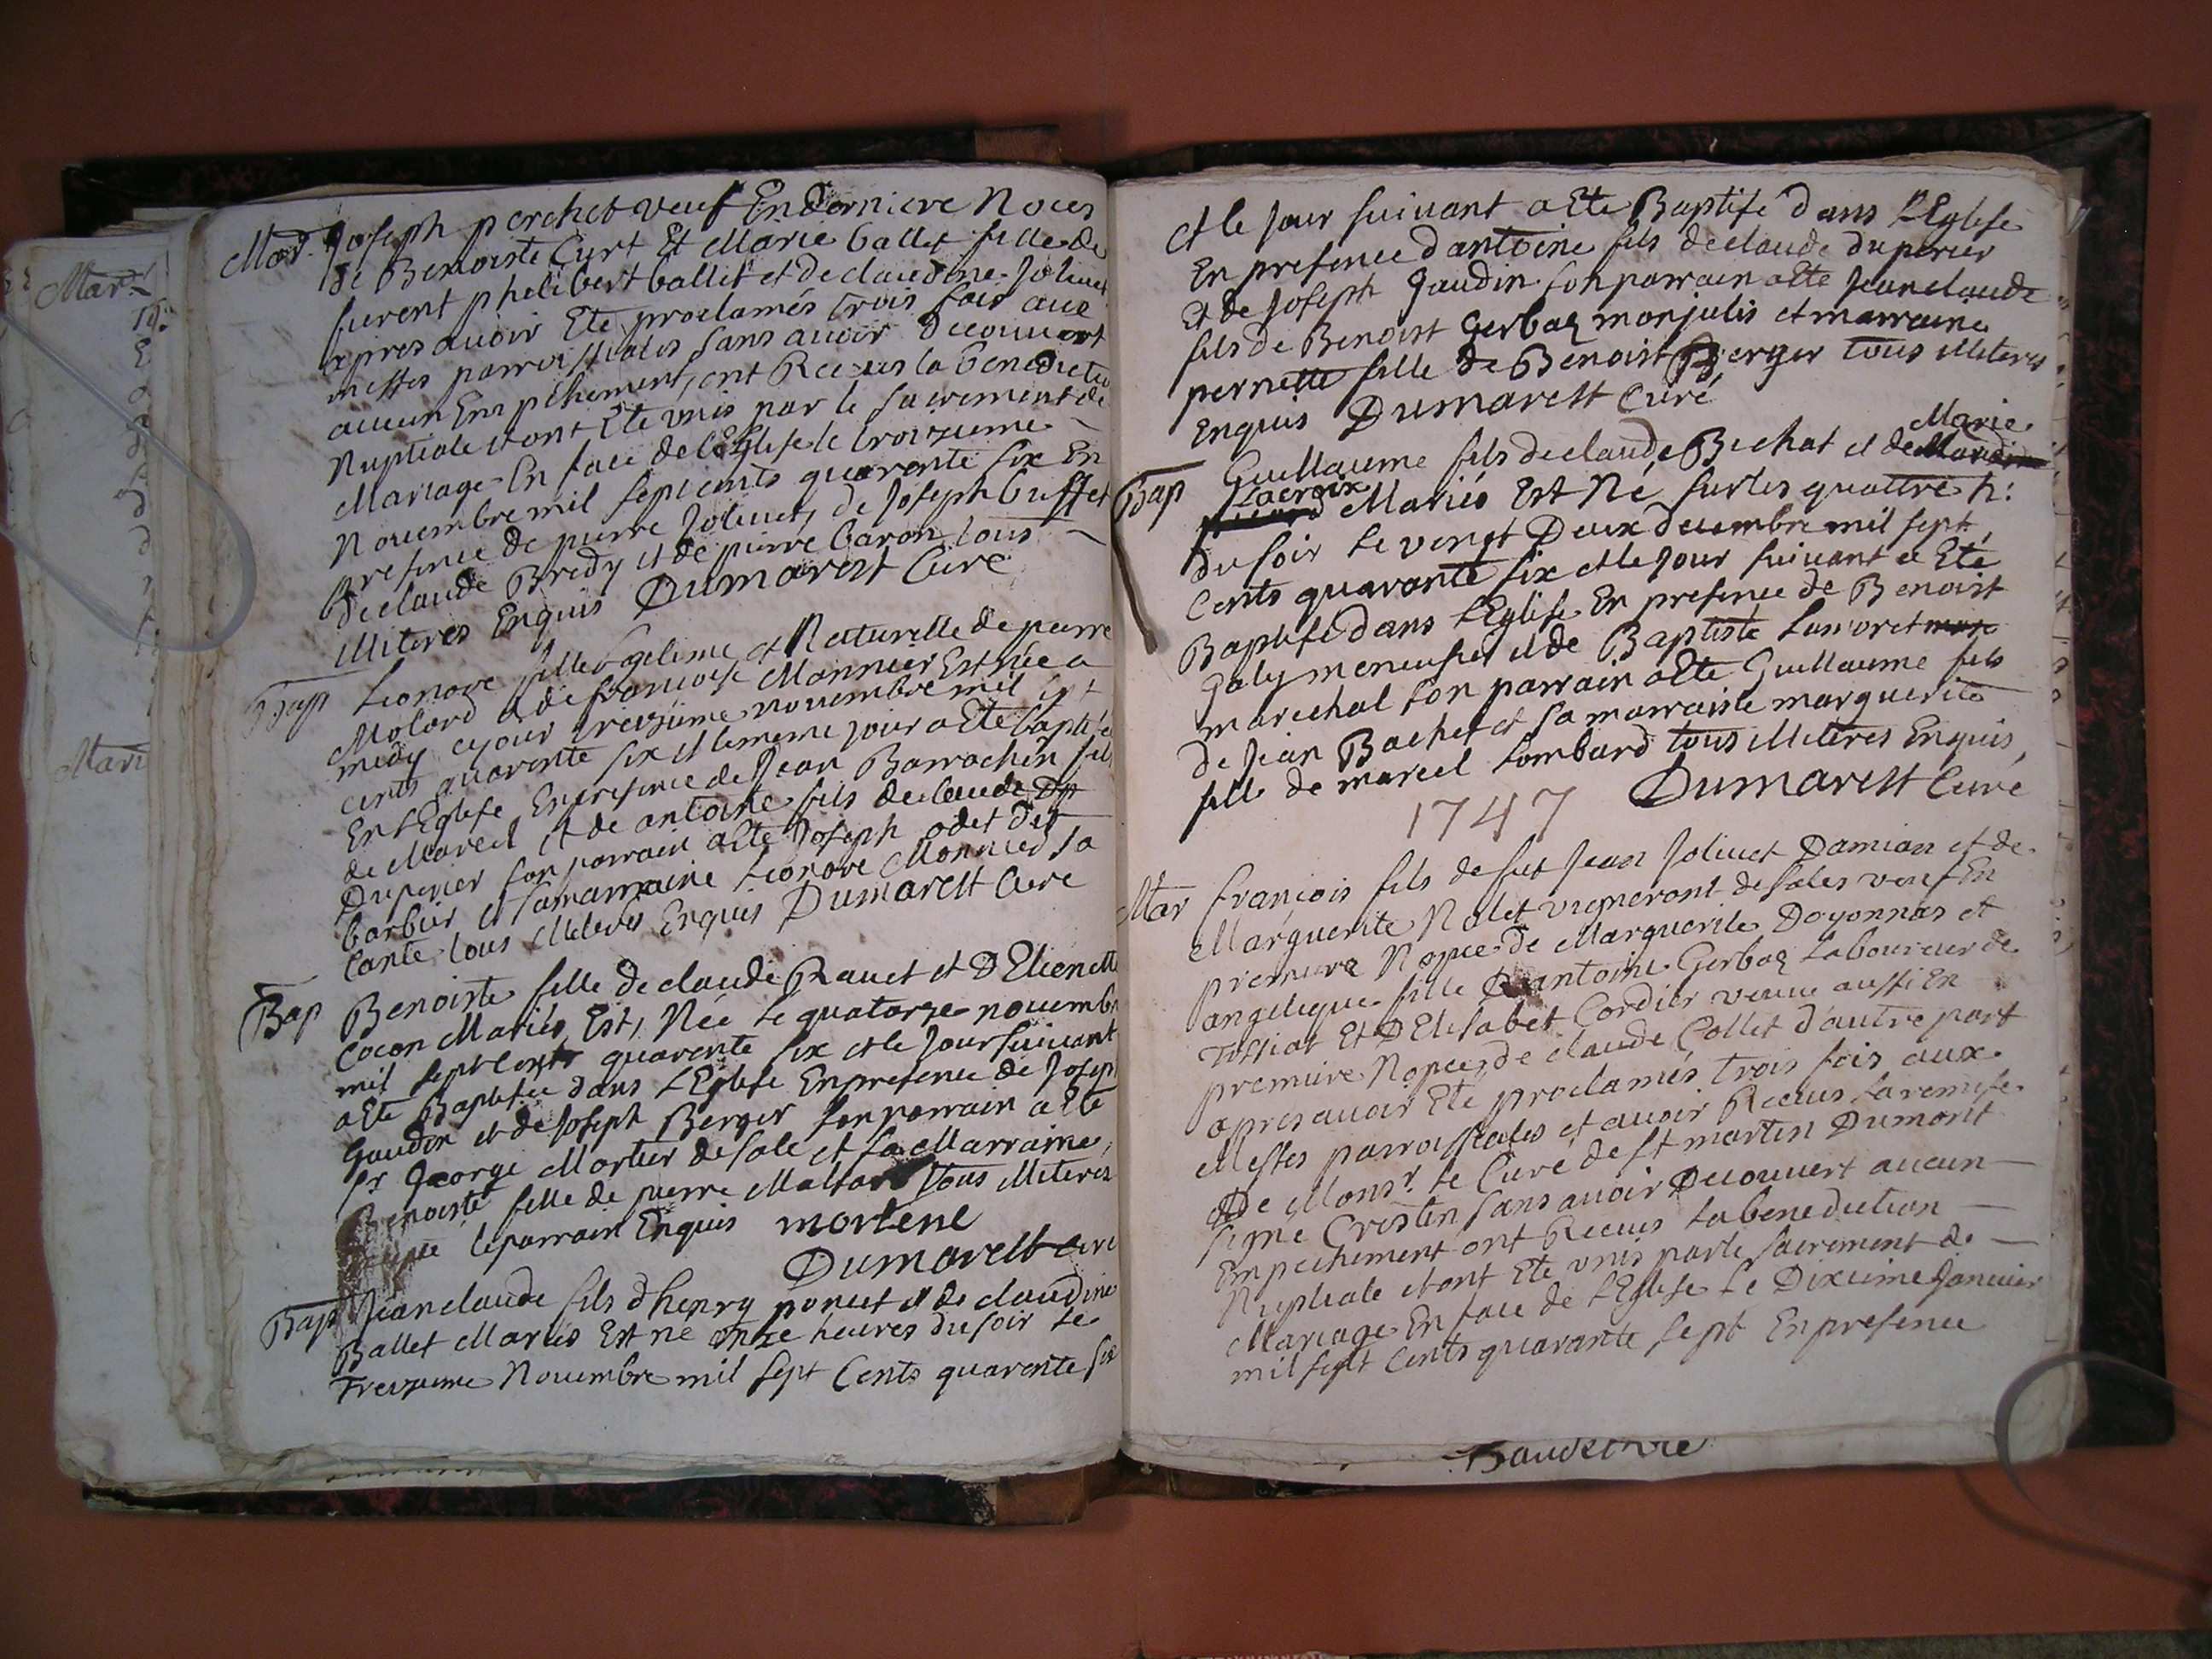 Mar. Joseph perchet veuf En Derniere Noces
de Benoiste Curt Et Marie ballet fille de
furent philibert ballet et de claudine Jolivet
apres avoir Eté proclamés trois fois aux
messes parroissiales sans avoir decouvert
aucun Empechement, ont Receus la benedictio
Nuptiale et ont Eté unis par le sacrement de
Mariage En face de l'Eglise le troizieme
Novembre mil sept cents quarente six En
presence de pierre Jolivet, de Joseph buffet
de claude Bredy et de pierre baron tous
illiteres Enquis Dumarest Curé
Bap Leonore fille Legitime et Naturelle de pierre
Molard et de francoise Monnier Est née a
midy ce jour treizieme novembre mil sept
cents quarente six et le meme jour a Eté baptisé
En l'Eglise En presence de Jean Barrachin fils
de Marcel et de antoine fils de claude Du
Duperier son parrain a Eté Joseph odet dit
barbier et sa marraine Leonore Monnier sa
tante tous illiteres Enquis Dumarest Curé
Bap Benoiste fille de claude Ravet et D'Etienette
Cocon Mariés, Est, Née Le quatorze novembre
mil sept Cents quarente six et le Jour suivant
a Eté Baptisée dans L'Eglise En presence de Joseph
Gaudin et de Joseph Berger son parrain a Eté
sr George Mortier de sale et sa Marraine
Benoiste fille de pierre Tous illiteres
le parrain Enquis mortene
Dumarest Curé
Bap Jean claude fils d'henry ponest et de claudine
Ballet Mariés Est né onze heures du soir Le
Treizieme Novembre mil sept Cents quarente six
et le Jour suivant a Eté Baptisé dans L'Eglise
En presence d'antoine fils de claude duperier
et de Joseph Gaudin son parrain a Eté Jean claude
fils de Benoist Gerbaz monjulis et marraine
pernette fille de Benoist Berger tous illiteres
Enquis Dumarest Curé
Marie
Bap Guillaume fils de claude Bichat et de
Lacroix
Mariés Est Né sur les quattre h:
du soir Le vengt Deux decembre mil sept
Cents quarante six et le Jour suivant a Eté
Baptisé dans L'Eglise En presence de Benoist
Galy menusier et de Baptiste Lamoret
marechal son parrain a Eté Guillaume fils
de Jean Bachet et sa marraine marguerite
fille de marcel Lombard tous illiteres Enquis,
1747 Dumarest Curé
Mar françois fils de fut Jean Jolivet Damian et de
Marguerite Nalet vigneront de sales veuf En
premiere Nopce de Marguerite Doyonnas et
angelique fille D'antoine Gerbaz Laboureur de
Tossiat Et D'Elisabet Cordier veuve aussi En
premiere Nopces de claude Collet d'autre part
apres avoir Eté proclamés trois fois aux
Messes parroissiales et avoir Receus La remise
de Monsr. Le Curé de st martin Dumont
signé Crestin sans avoir Decouvert aucun
Empechement ont Receus La benediction
Nuptiale et ont Eté unis par le sacrement de
Mariage En face de L'Eglise Le Dixieme Janvier
mil sept Cents quarante sept En presence
Mar.
Mari